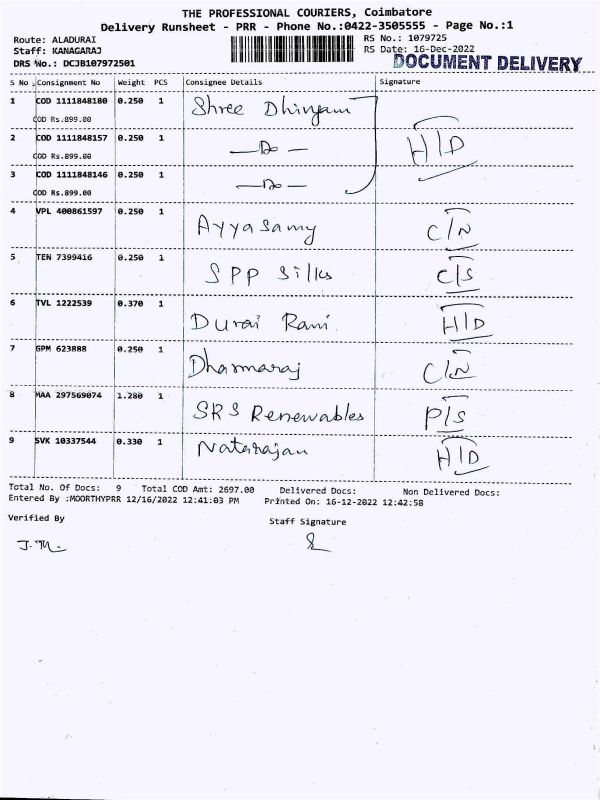 THE PROFESSIONAL COURIERS, Coimbatore
Delivery Runsheet - PRR - Phone No.:0422-3505555 - Page No.:1
Route: ALADURAI RS No.: 1079725
Staff: KANAGARAJ RS Date: 16-Dec-2022
DRS No.: DCJB107972501 DOCUMENT DELIVERY
S No Consignment No Weight PCS Consignee Details Signature
1 COD 1111848180 0.250 1 Shree Dhingam
COD Rs.899.00
2 COD 1111848157 0.250 1 —Do— H/D
COD Rs.899.00
3 COD 1111848146 0.250 1 —Do—
COD Rs.899.00
4 VPL 400861597 0.250 1 Ayyasamy C/N
5 TEN 7399416 0.250 1 SPP Silks C/S
6 TVL 1222539 0.370 1 Durai Rani H/D
7 GPM 623888 0.250 1 Dharmaraj C/N
8 MAA 297569074 1.280 1 SRS Renewables P/S
9 SVK 10337544 0.330 1 Natarajan H/D
Total No. Of Docs: 9 Total COD Amt: 2697.00 Delivered Docs: Non Delivered Docs:
Entered By :MOORTHYPRR 12/16/2022 12:41:03 PM Printed On: 16-12-2022 12:42:58
Verified By Staff Signature